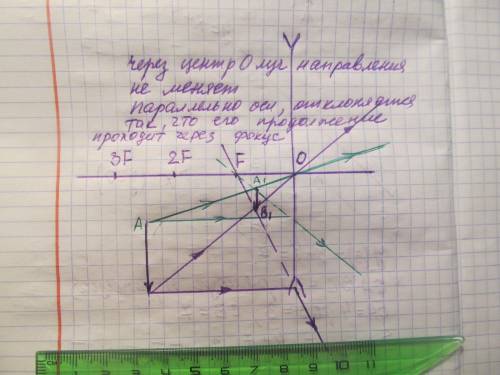 через центр О луч направления
не меняет
параллельно оси, отклоняется
так, что его продолжение
проходит через фокус
3F 2F F O
A A₁
B₁
1 2 3 4 5 6 7 8 9 10 11